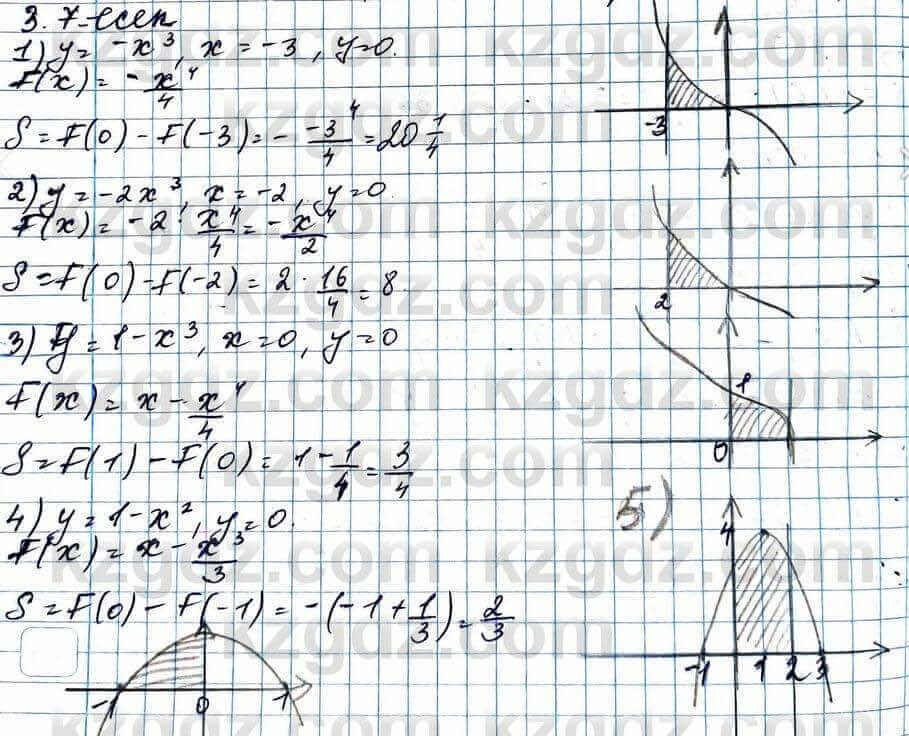 3.7-есеп
1) y = -x³, x = -3, y=0.
F(x) = -x⁴/4
S = F(0) - F(-3) = - -3⁴/4 = 20 1/4
-3
2) y = -2x³, x = -2, y=0.
F(x) = -2 · x⁴/4 = -x⁴/2
S = F(0) - F(-2) = 2 · 16/4 = 8
2
3) y = 1-x³, x=0, y=0
1
F(x) = x - x⁴/4
0
S = F(1) - F(0) = 1 - 1/4 = 3/4
4) y = 1-x², y=0.
F(x) = x - x³/3
S = F(0) - F(-1) = -(-1 + 1/3) = 2/3
-1 0 1
5)
4
-1 1 2 3
kzgdz.com